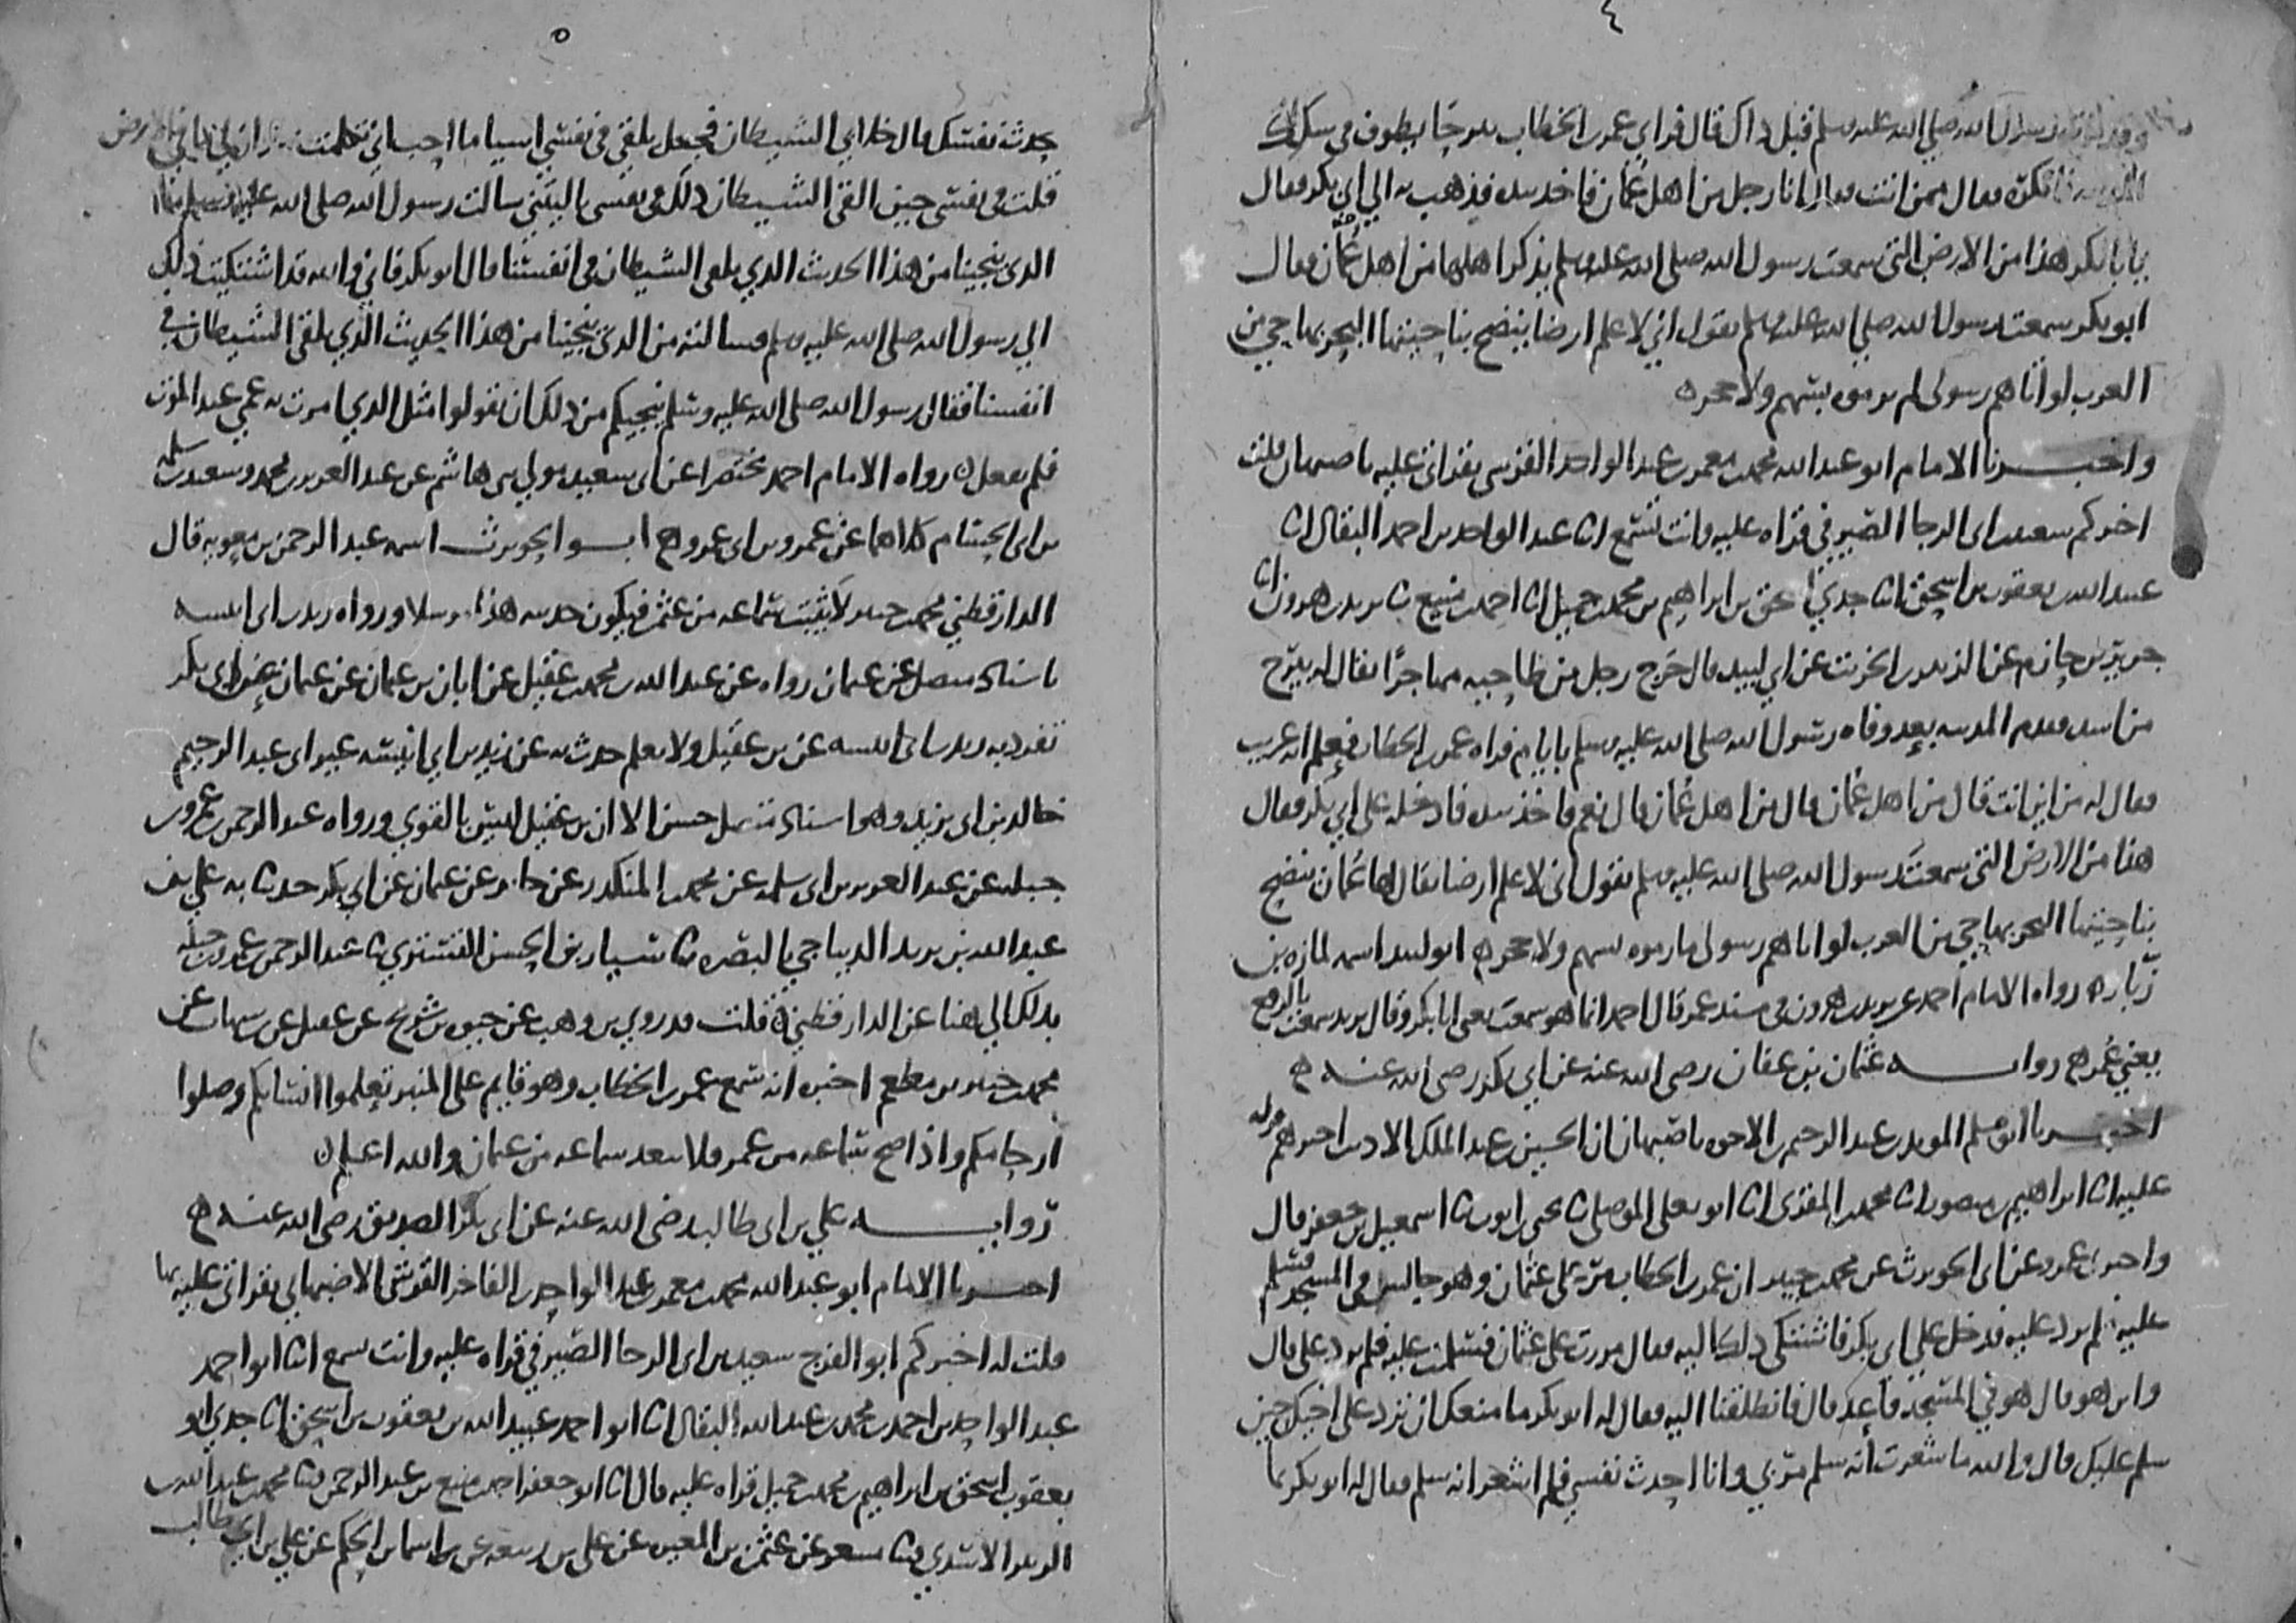 ٤
رسول الله صلى الله عليه وسلم قبل ذاك قال فراى عمر بن الخطاب بيرحا يطوف في سكك
فانكره فقال ممن انت فقال انا رجل من اهل عمان فاخذ بيده فذهب به الى ابي بكر فقال
يا با بكر هذا من الارض التي سمعت رسول الله صلى الله عليه وسلم يذكر اهلها من اهل عمان فقال
ابو بكر سمعت رسول الله صلى الله عليه وسلم يقول اني لاعلم ارضا ينضح بناحيتها البحر بها حي من
العرب لو اتاهم رسولي لم يرموه بسهم ولا حجر ه
واخبرنا الامام ابو عبد الله محمد بن معمر بن عبد الواحد القرشي بقراتي عليه باصبهان قلت
اخبركم سعيد بن ابى الرجا الصيرفي قراه عليه وانت تسمع انا عبد الواحد بن احمد البقال انا
عبيد الله بن يعقوب بن اسحق انا جدي اسحق بن ابراهيم بن محمد بن جميل انا احمد بن منيع ثنا يزيد بن هرون انا
جرير بن حازم عن الزبير بن الخريت عن ابي لبيد قال خرج رجل من طاحيه مهاجرا يقال له بيرح
بن اسد فقدم المدينه بعد وفاه رسول الله صلى الله عليه وسلم بايام فراه عمر بن الخطاب فعلم انه غريب
فقال له من اين انت قال من اهل عمان قال من اهل عمان قال نعم فاخذ بيده فادخله على ابي بكر فقال
هذا من الارض التي سمعت رسول الله صلى الله عليه وسلم يقول اني لاعلم ارضا يقال لها عمان ينضح
بناحيتها البحر بها حي من العرب لو اتاهم رسولي ما رموه بسهم ولا حجر ه ابو لبيد اسمه لمازه بن
زبار ه رواه الامام احمد عن يزيد بن هرون في مسند عمر قال احمد انما هو سمعت يعني ابا بكر وقال يزيد سمعت بالرفع
يعني عمر ه روايــة عثمان بن عفان رضى الله عنه عن ابي بكر رضى الله عنه ه
اخبرنا ابو مسلم المويد بن عبد الرحيم بن الاخوه باصبهان ان الحسين بن عبد الملك الاديب اخبرهم قراه
عليه انا ابراهيم بن منصور انا محمد بن المقرى انا ابو يعلى الموصلي ثنا يحيى بن ايوب ثنا اسمعيل بن جعفر قال
واخبرني عمرو عن ابى الحويرث عن محمد بن جبير ان عمر بن الخطاب مر على عثمان وهو جالس في المسجد فسلم
عليه فلم يرد عليه فدخل على ابي بكر فاشتكى ذلك اليه فقال مررت على عثمان فسلمت عليه فلم يرد علي قال
واين هو قال هو في المسجد قاعد قال فانطلقنا اليه فقال له ابو بكر ما منعك ان ترد على اخيك حين
سلم عليك قال والله ما شعرت انه سلم مر بي وانا احدث نفسي فلم اشعر انه سلم فقال له ابو بكر بما
٥
تحدث نفسك قال خلا بي الشيطان فجعل يلقي في نفسي اشيا ما احب اني تكلمت بها وان لي ما في الارض
قلت في نفسي حين القى الشيطان ذلك في نفسي يا ليتني سالت رسول الله صلى الله عليه وسلم ما
الذي ينجينا من هذا الحديث الذي يلقى الشيطان في انفسنا قال ابو بكر فاني والله قد اشتكيت ذلك
الى رسول الله صلى الله عليه وسلم وسالته من الذي ينجينا من هذا الحديث الذي يلقى الشيطان في
انفسنا فقال رسول الله صلى الله عليه وسلم ينجيكم من ذلك ان تقولوا مثل الذي امرت به عمي عند الموت
فلم يفعل ه رواه الامام احمد مختصرا عن ابى سعيد مولى بني هاشم عن عبد العزيز بن محمد وسعيد بن سلمه
بن ابى الحسام كلاهما عن عمرو بن ابى عمرو ه ابو الحويرث اسمه عبد الرحمن بن معويه قال
الدارقطني محمد بن جبير لا يثبت سماعه من عثمن فيكون حديثه هذا مرسلا ورواه زيد بن ابى انيسه
باسناد متصل عن عثمان رواه عن عبد الله بن محمد بن عقيل عن ابان بن عثمان عن عثمان عن ابى بكر
تفرد به زيد بن ابى انيسه عن بن عقيل ولا نعلم حدث به عن زيد بن ابي انيسه غير ابى عبد الرحيم
خالد بن ابى يزيد وهو اسناد متصل حسن الا ان بن عقيل ليس بالقوي ورواه عبد الرحمن بن عمرو بن
جبله عن عبد العزيز بن ابى سلمه عن محمد بن المنكدر عن جابر عن عثمان عن ابي بكر حدثنا به علي بن
عبد الله بن يزيد الديباجي بالبصره ثنا سيار بن الحسن التستري ثنا عبد الرحمن بن عمرو بن جبله
بذلك الى هنا عن الدارقطني ه قلت قد روي بن وهب عن حيوه بن شريح عن عقيل عن بن شهاب عن
محمد بن جبير بن مطعم اخبره انه سمع عمر بن الخطاب وهو قايم على المنبر تعلموا انسابكم وصلوا
ارحامكم واذا صح سماعه من عمر فلا يبعد سماعه من عثمان والله اعلم ه
روايــة علي بن ابى طالب رضى الله عنه عن ابى بكر الصديق رضى الله عنه ه
اخبرنا الامام ابو عبد الله محمد بن معمر بن عبد الواحد بن الفاخر القرشي الاصبهاني بقراتي عليه بها
قلت له اخبركم ابو الفرج سعيد بن ابى الرجا الصيرفي قراه عليه وانت تسمع انا ابو احمد
عبد الواحد بن احمد بن محمد بن عبد الله البقال انا ابو احمد عبيد الله بن يعقوب بن اسحق انا جدي ابو
يعقوب اسحق بن ابراهيم بن محمد بن جميل قراه عليه قال انا ابو جعفر احمد بن منيع بن عبد الرحمن ثنا محمد بن عبد الله بن
الزبير الاسدي ثنا مسعر عن عثمن بن المغيره عن علي بن ربيعه عن اسما بن الحكم عن علي بن ابي طالب